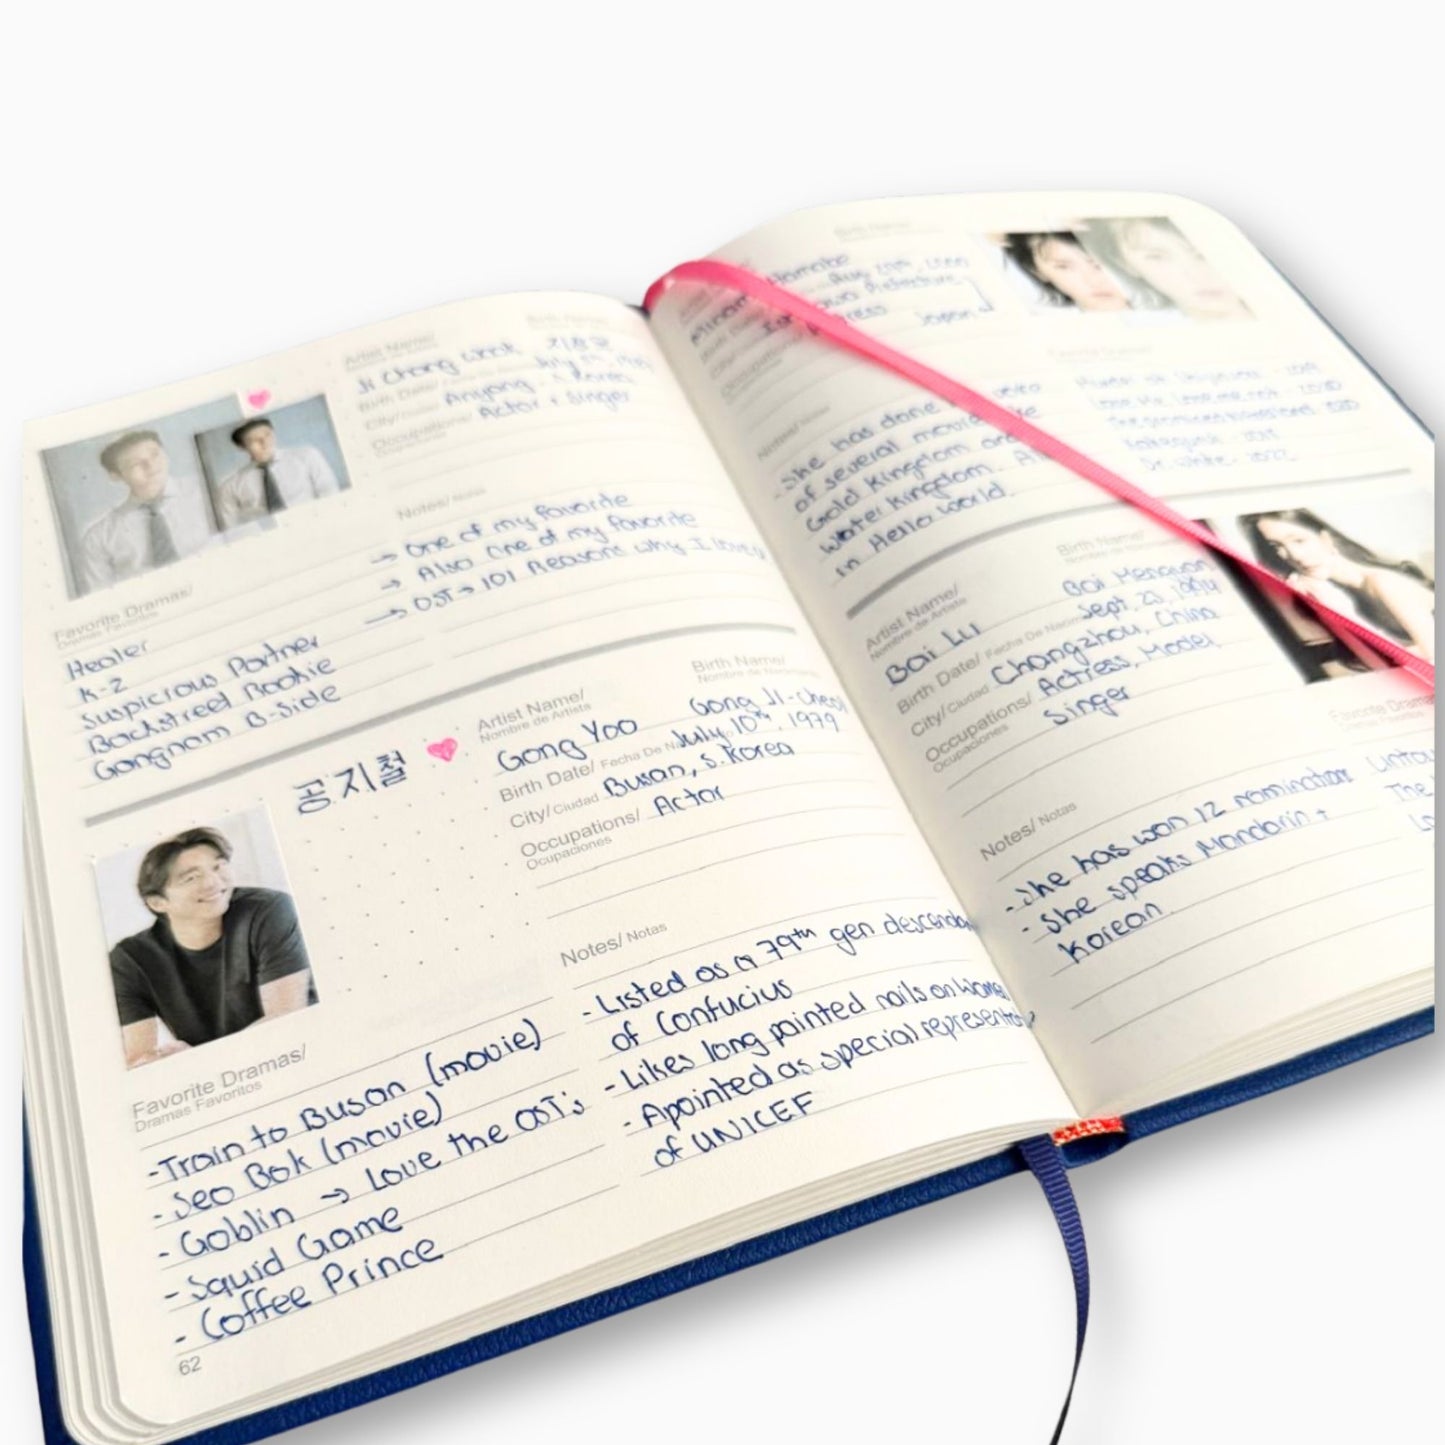 Artist Name/
Nombre de Artista
Birth Name/
Ji Chang Wook 지창욱
Birth Date/
July
City/ Ciudad Anyang, S. Korea
Occupations/ Actor + Singer
Ocupaciones
Notes/ Notas
→ One of my favorite
→ Also one of my favorite
→ OST → 101 Reasons why I love U
Favorite Dramas/
Dramas Favoritos
Healer
K-2
Suspicious Partner
Backstreet Rookie
Gangnam B-Side
공지철
Artist Name/
Nombre de Artista
Birth Name/
Nombre de Nacimiento
Gong Yoo
Gong Ji-cheol
Birth Date/ Fecha De July 10th, 1979
City/ Ciudad Busan, S. Korea
Occupations/ Actor
Ocupaciones
Notes/ Notas
- Listed as a 79th gen descendan
of Confucius
- Likes long painted nails on women
- Apointed as special representativ
of UNICEF
Favorite Dramas/
Dramas Favoritos
- Train to Busan (movie)
- Seo Bok (movie)
- Goblin → Love the OST's
- Squid Game
- Coffee Prince
62
Birth Name/
Hamabe
Aug 29th, 2000
Prefecture,
Japan
Notes/
- She has done voice
of several movies like
Gold Kingdom and
Water Kingdom.
in Hello World.
Love me, love me not - 2020
The promised neverland
Kakegurui
Dr. White - 2022
Artist Name/
Nombre de Artista
Birth Name/
Nombre de Nacimiento
Bai Lu
Bai Mengyan
Birth Date/ Fecha De Sept. 23, 1994
City/ Ciudad Changzhou, China
Occupations/ Actress, Model
Ocupaciones
Singer
Notes/ Notas
- She has won 12 nominations
- She speaks Mandarin +
Korean.
Favorite
Dramas
The